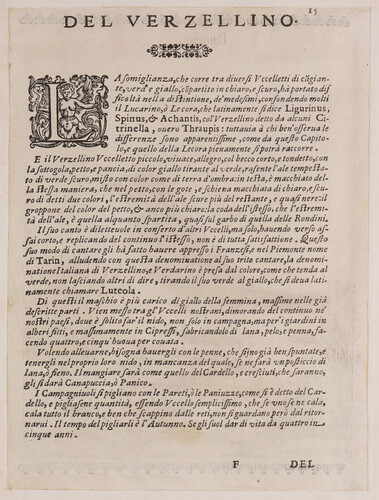 15
DEL VERZELLINO.
LA somiglianza, che corre tra diuersi Vccelletti di cãgiante, verd' e giallo, cõpartito in chiaro, e scuro, hà portato difficoltà nella distintione, de' medesimi, confondendo molti
il Lucarino, ò Lecora, che latinamente si dice Ligurinus,
Spinus, & Achantis, col Verzellino detto da alcuni Citrinella, ouero Thraupis: tuttauia à chi ben'osserua le
differenze sono apparentissime, come da questo Capitolo, e quello della Lecora pienamente si potrà raccorre.
E il Verzellino Vccelletto piccolo, viuace, allegro, col becco corto, e tondetto, con
la sottogola, petto, e pancia, di color giallo tirante al verde, risente l'ale tempestato di verde scuro, misto con color come di terra d'ombra: in testa, è macchiato della stessa maniera, che nel petto, con le gote, e schiena macchiata di chiaro, e scuro di detti due colori, l'estremità dell'ale scure più del restante, e quasi nere: il
groppone del color del petto, & anco più chiaro: la coda dell'istesso, che l'estremità dell'ali, è quella alquanto spartita, quasi sul garbo di quelle delle Rondini.
Il suo canto è diletteuole in conserto d'altri Vccelli, ma solo, hauendo verso assai corto, e replicando del continuo l'istesso, non è di tutta satisfatione. Questo
suo modo di cantare gli hà fatto hauere appresso i Franzesi, e nel Piemonte nome
di Tarin, alludendo con questa denominatione al suo trito cantare, la denominatione Italiana di Verzellino, e Verdarino è presa dal colore, come che tenda al
verde, non lasciando altri di dire, tirando il suo verde al giallo, che si deua latinamente chiamare Luteola.
Di questi il maschio è più carico di giallo della femmina, massime nelle già
descritte parti. Vien messo tra gl'Vccelli nostrani, dimorando del continuo ne'
nostri paesi, doue è solito far'il nido, non solo in campagna, ma per'i giardini in
alberi fitti, e massimamente in Cipressi, fabricandolo di lana, pelo, e penna, facendo quattro, e cinq'huoua per couata.
Volendo alleuarne, bisogna hauergli con le penne, che sijno già ben spuntate, e
tenergli nel proprio loro nido, in mancanza del quale, se ne farà vn posticcio di
lana, ò fieno. Il mangiare sarà come quello del Cardello, e cresciuti, che saranno,
gli si darà Canapuccia, ò Panico.
I Campagniuoli si pigliano con le Pareti, ò le Paniuzze, come si è detto del Cardello, e pigliasene quantità, essendo Vccello semplicissimo, che se vno se ne cala,
cala tutto il branco, e ben che scappino dalle reti, non si guardano però dal ritornarui. Il tempo del pigliarli è l'Autunno. Se gli suol dar di vita da quattro in
cinque anni.
F DEL